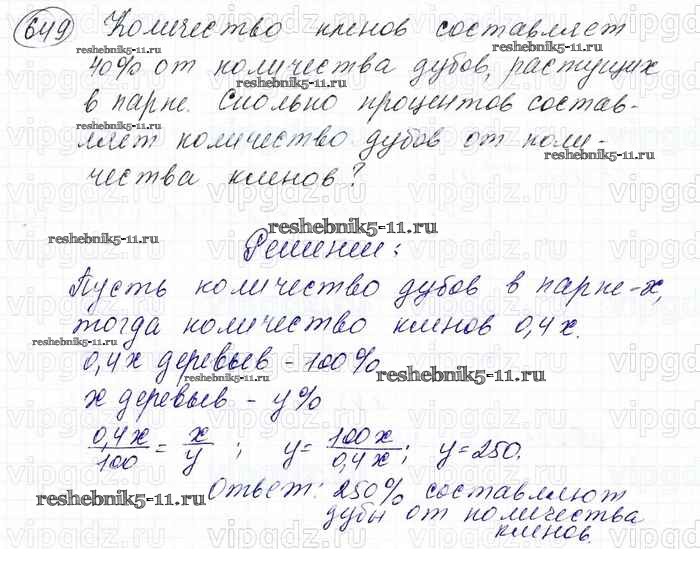 649 Количество кленов составляет
40% от количества дубов, растущих
в парке. Сколько процентов состав-
ляет количество дубов от коли-
чества кленов?
Решение:
Пусть количество дубов в парке - x,
тогда количество кленов 0,4x.
0,4x деревьев - 100%
x деревьев - y%
0,4x/100 = x/y ; y = 100x/0,4x ; y = 250.
Ответ: 250% составляют
дубы от количества
кленов.
reshebnik5-11.ru
reshebnik5-11.ru
reshebnik5-11.ru
reshebnik5-11.ru
reshebnik5-11.ru
reshebnik5-11.ru
reshebnik5-11.ru
reshebnik5-11.ru
reshebnik5-11.ru
reshebnik5-11.ru
reshebnik5-11.ru
vipgdz.ru